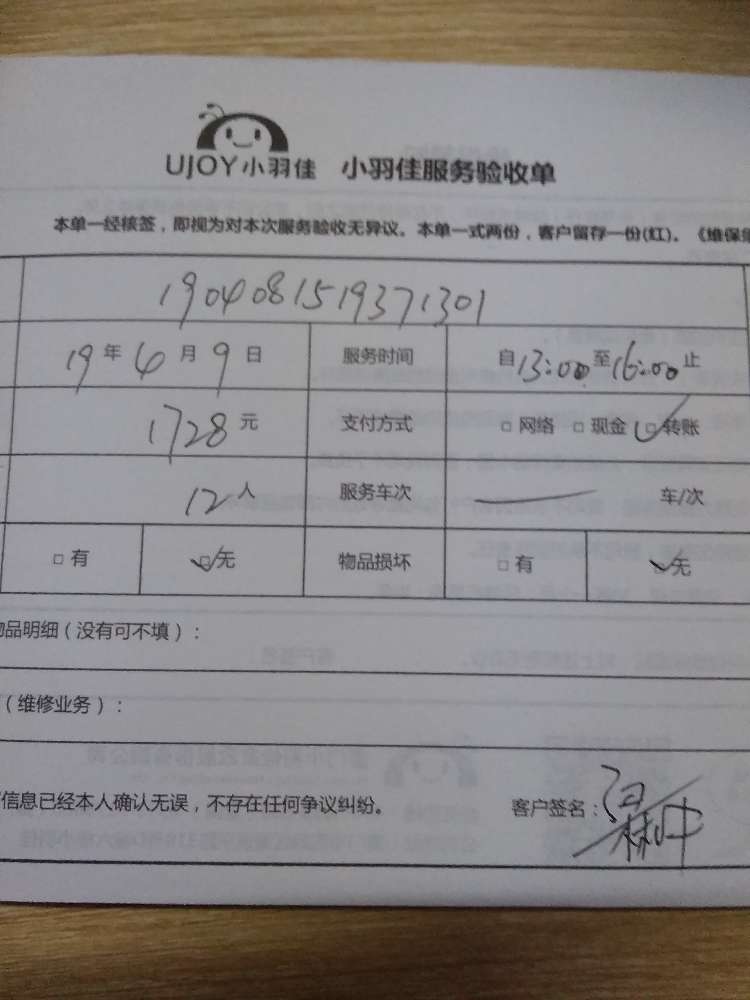 UJOY小羽佳 小羽佳服务验收单
本单一经核签，即视为对本次服务验收无异议。本单一式两份，客户留存一份(红)。《维保
1904081519371301
19年4月9日 服务时间 自13:00至16:00止
1728元 支付方式 □网络 □现金 ☑转账
12人 服务车次 —— 车/次
□有 ☑无 物品损坏 □有 ☑无
品明细（没有可不填）：
（维修业务）：
信息已经本人确认无误，不存在任何争议纠纷。 客户签名：